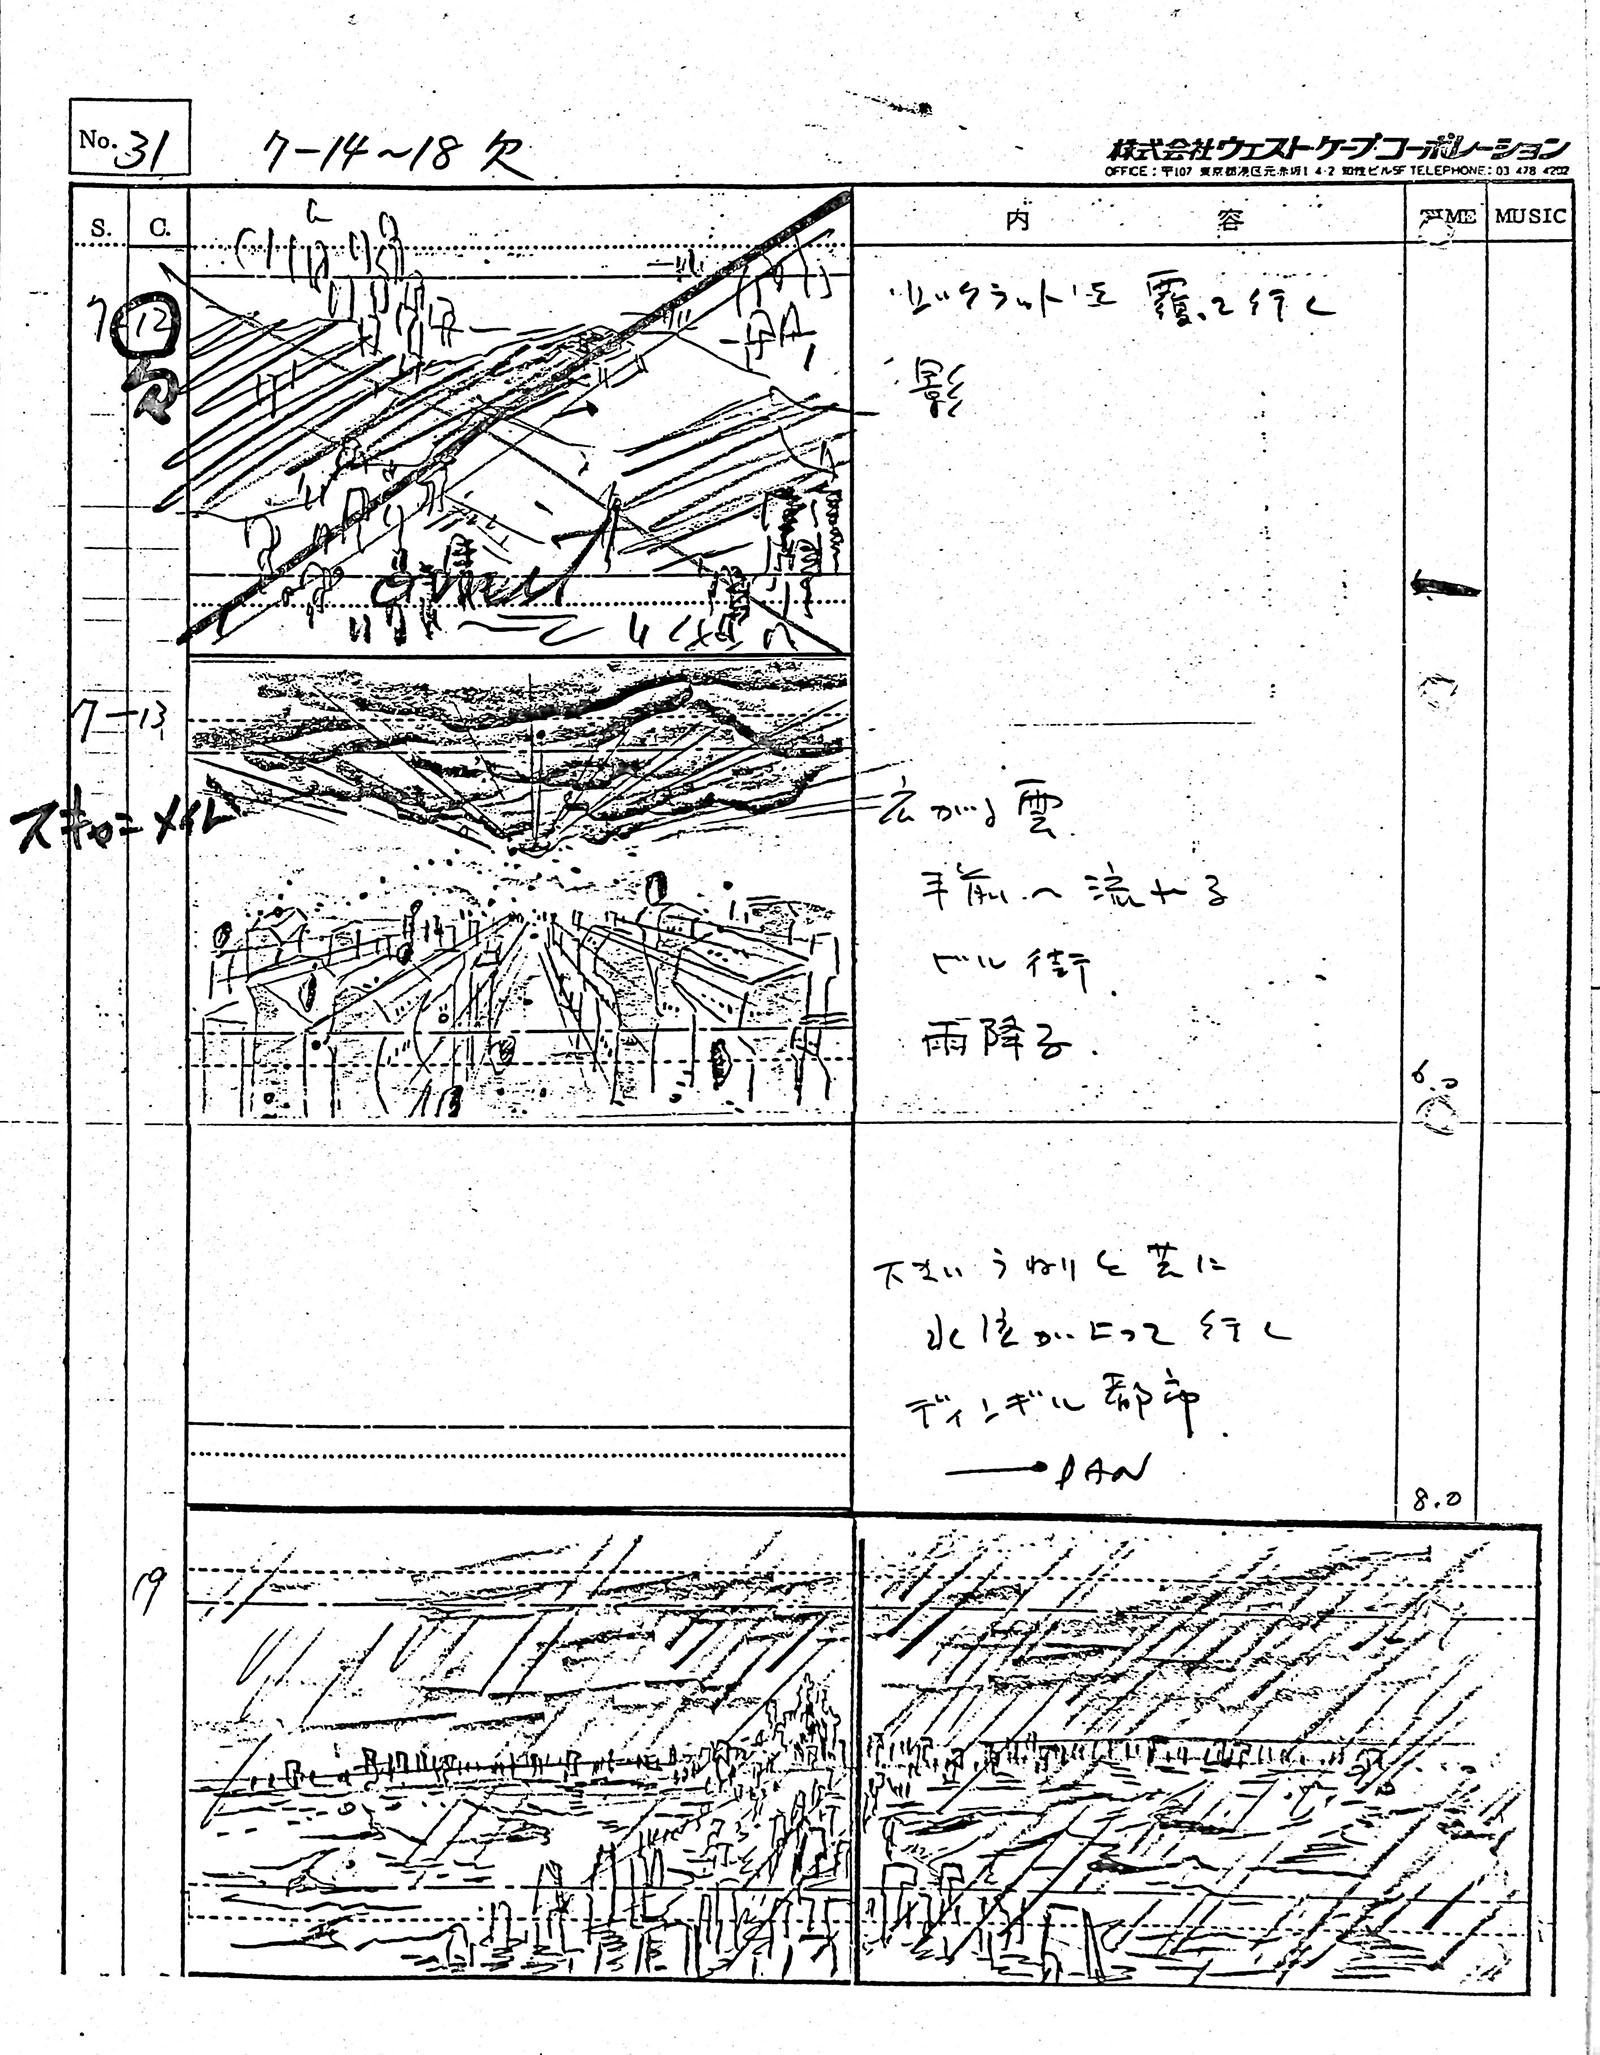 No. 31
7-14~18 欠
株式会社ウエスト・ケープ・コーポレーション
OFFICE:〒107 東京都港区元赤坂1 4-2 知性ビル5F TELEPHONE: 03 478 4202
S. C. 内 容 TIME MUSIC
7 12
欠
ジックラットを 覆って行く
影
7-13
スキャニメイト
広がる雲
手前へ流れる
ビル街
雨降る.
6.0
大きいうねりと共に
水位が上って行く
ディンギル都市.
→PAN
8.0
19